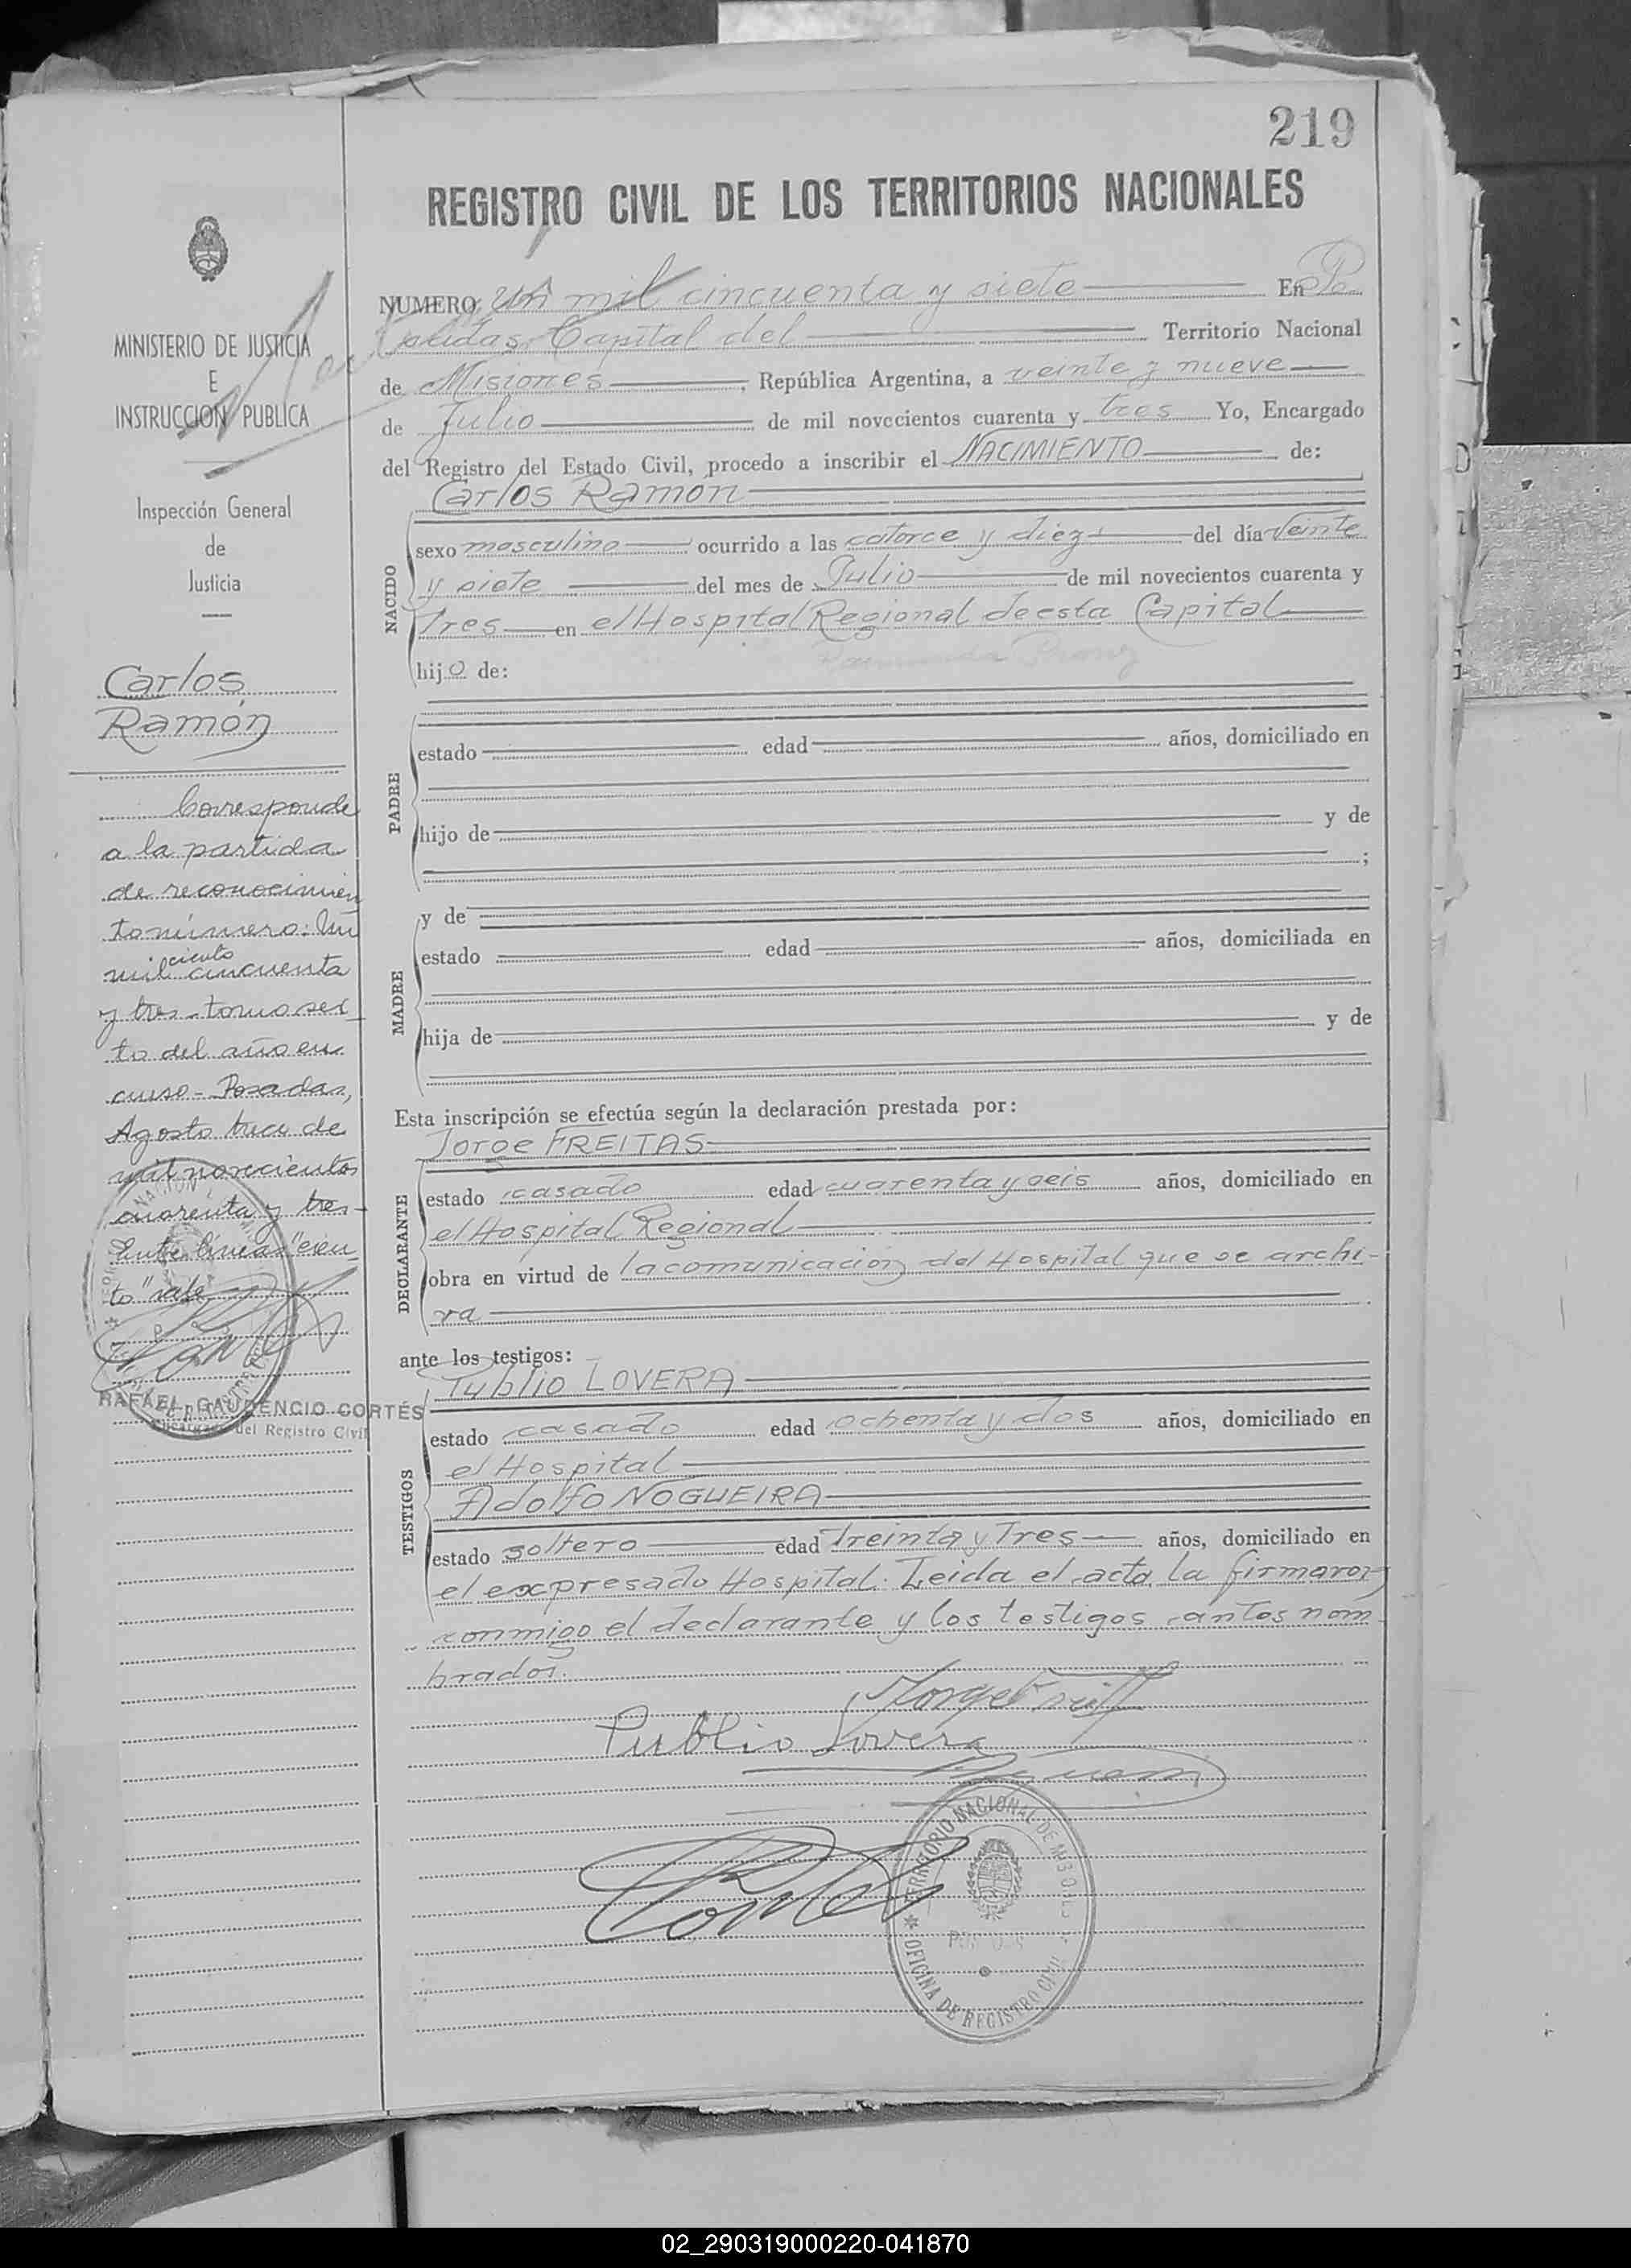 219
REGISTRO CIVIL DE LOS TERRITORIOS NACIONALES
NUMERO Un mil cincuenta y siete En Po
sadas, Capital del Territorio Nacional
de Misiones, República Argentina, a veinte y nueve
de Julio de mil novecientos cuarenta y tres Yo, Encargado
del Registro del Estado Civil, procedo a inscribir el NACIMIENTO de:
NACIDO
Carlos Ramón
sexo masculino ocurrido a las catorce y diez del día veinte
y siete del mes de Julio de mil novecientos cuarenta y
Tres en el Hospital Regional de esta Capital
hijo de:
PADRE
estado edad años, domiciliado en
hijo de y de
;
MADRE
y de
estado edad años, domiciliada en
hija de y de
Esta inscripción se efectúa según la declaración prestada por:
DECLARANTE
Jorge FREITAS
estado casado edad cuarenta y seis años, domiciliado en
el Hospital Regional
obra en virtud de la comunicación del Hospital que se archi-
va
ante los testigos:
TESTIGOS
Publio LOVERA
estado casado edad ochenta y dos años, domiciliado en
el Hospital
Adolfo NOGUEIRA
estado soltero edad Treinta y Tres años, domiciliado en
el expresado Hospital. Leida el acta, la firmaron
conmigo el declarante y los testigos antes nom
brados.
Publio Lovera
Cortés
TERRITORIO NACIONAL DE MISIONES
OFICINA DE REGISTRO CIVIL
MINISTERIO DE JUSTICIA
E
INSTRUCCION PUBLICA
Inspección General
de
Justicia
Carlos
Ramón
Corresponde
a la partida
de reconocimien
to número: Un
mil ciento cincuenta
y tres - tomo sex
to del año en
curso - Posadas,
Agosto trece de
mil novecientos
cuarenta y tres -
Entre líneas "cien
to" vale
RAFAEL GAUDENCIO CORTÉS
Encargado del Registro Civil
02_290319000220-041870